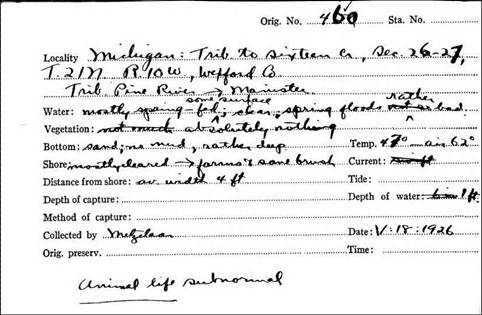 Orig. No. 460 Sta. No.
Locality Michigan: Trib to Sixteen Cr, Sec. 26-27,
T. 21N R. 10W, Wexford Co.
Trib. Pine River → Manistee
some surface rather
Water: mostly spring-fed, clear, spring floods not so bad
Vegetation: not much absolutely nothing
Bottom: sand, no mud, rather deep Temp. 47° — air 62°
Shore: mostly cleared → farms & some brush Current:
Distance from shore: av width 4 ft Tide:
Depth of capture: Depth of water: 1 ft
Method of capture:
Collected by Metzelaar Date: V·18·1926
Orig. preserv. Time:
Animal life subnormal